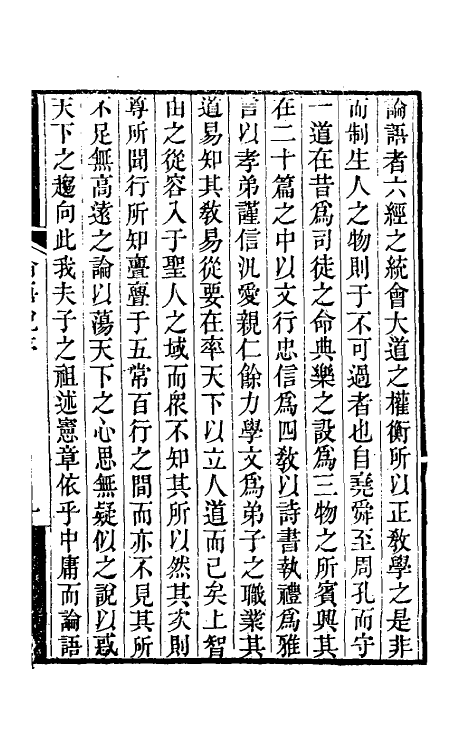 論語者六經之統會大道之權衡所以正敎學之是非
而制生人之物則于不可過者也自堯舜至周孔而守
一道在昔爲司徒之命典樂之設爲三物之所賓興其
在二十篇之中以文行忠信爲四敎以詩書執禮爲雅
言以孝弟謹信汎愛親仁餘力學文爲弟子之職業其
道易知其敎易從要在率天下以立人道而已矣上智
由之從容入于聖人之域而衆不知其所以然其次則
尊所聞行所知亹亹于五常百行之間而亦不見其所
不足無高遠之論以蕩天下之心思無疑似之說以惑
天下之趨向此我夫子之祖述憲章依乎中庸而論語